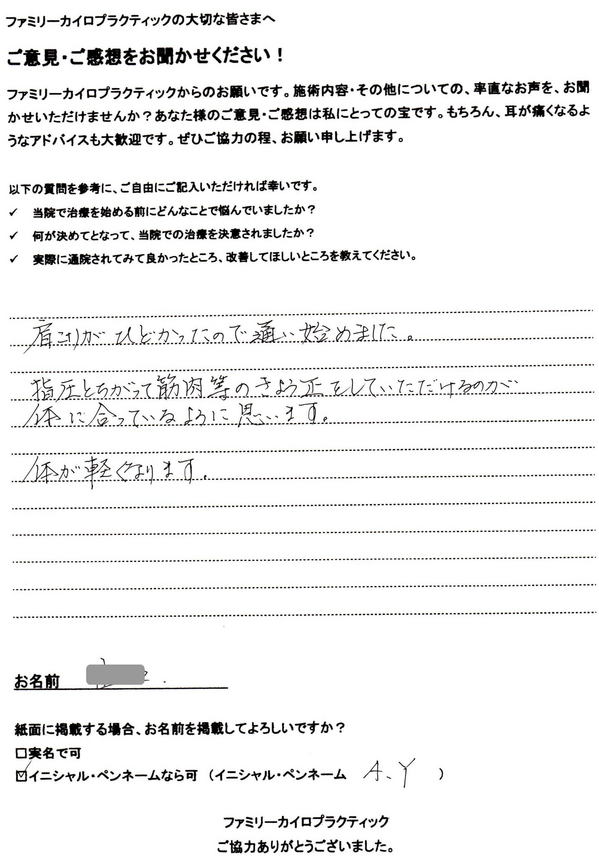 ファミリーカイロプラクティックの大切な皆さまへ
ご意見・ご感想をお聞かせください！
ファミリーカイロプラクティックからのお願いです。施術内容・その他についての、率直なお声を、お聞
かせいただけませんか？あなた様のご意見・ご感想は私にとっての宝です。もちろん、耳が痛くなるよ
うなアドバイスも大歓迎です。ぜひご協力の程、お願い申し上げます。
以下の質問を参考に、ご自由にご記入いただければ幸いです。
✓ 当院で治療を始める前にどんなことで悩んでいましたか？
✓ 何が決めてとなって、当院での治療を決意されましたか？
✓ 実際に通院されてみて良かったところ、改善してほしいところを教えてください。
肩コリがひどかったので通い始めました。
指圧とちがって筋肉等のきょう正をしていただけるのが
体に合っているように思います。
体が軽くなります。
お名前
紙面に掲載する場合、お名前を掲載してよろしいですか？
□実名で可
☑イニシャル・ペンネームなら可 （イニシャル・ペンネーム A.Y ）
ファミリーカイロプラクティック
ご協力ありがとうございました。